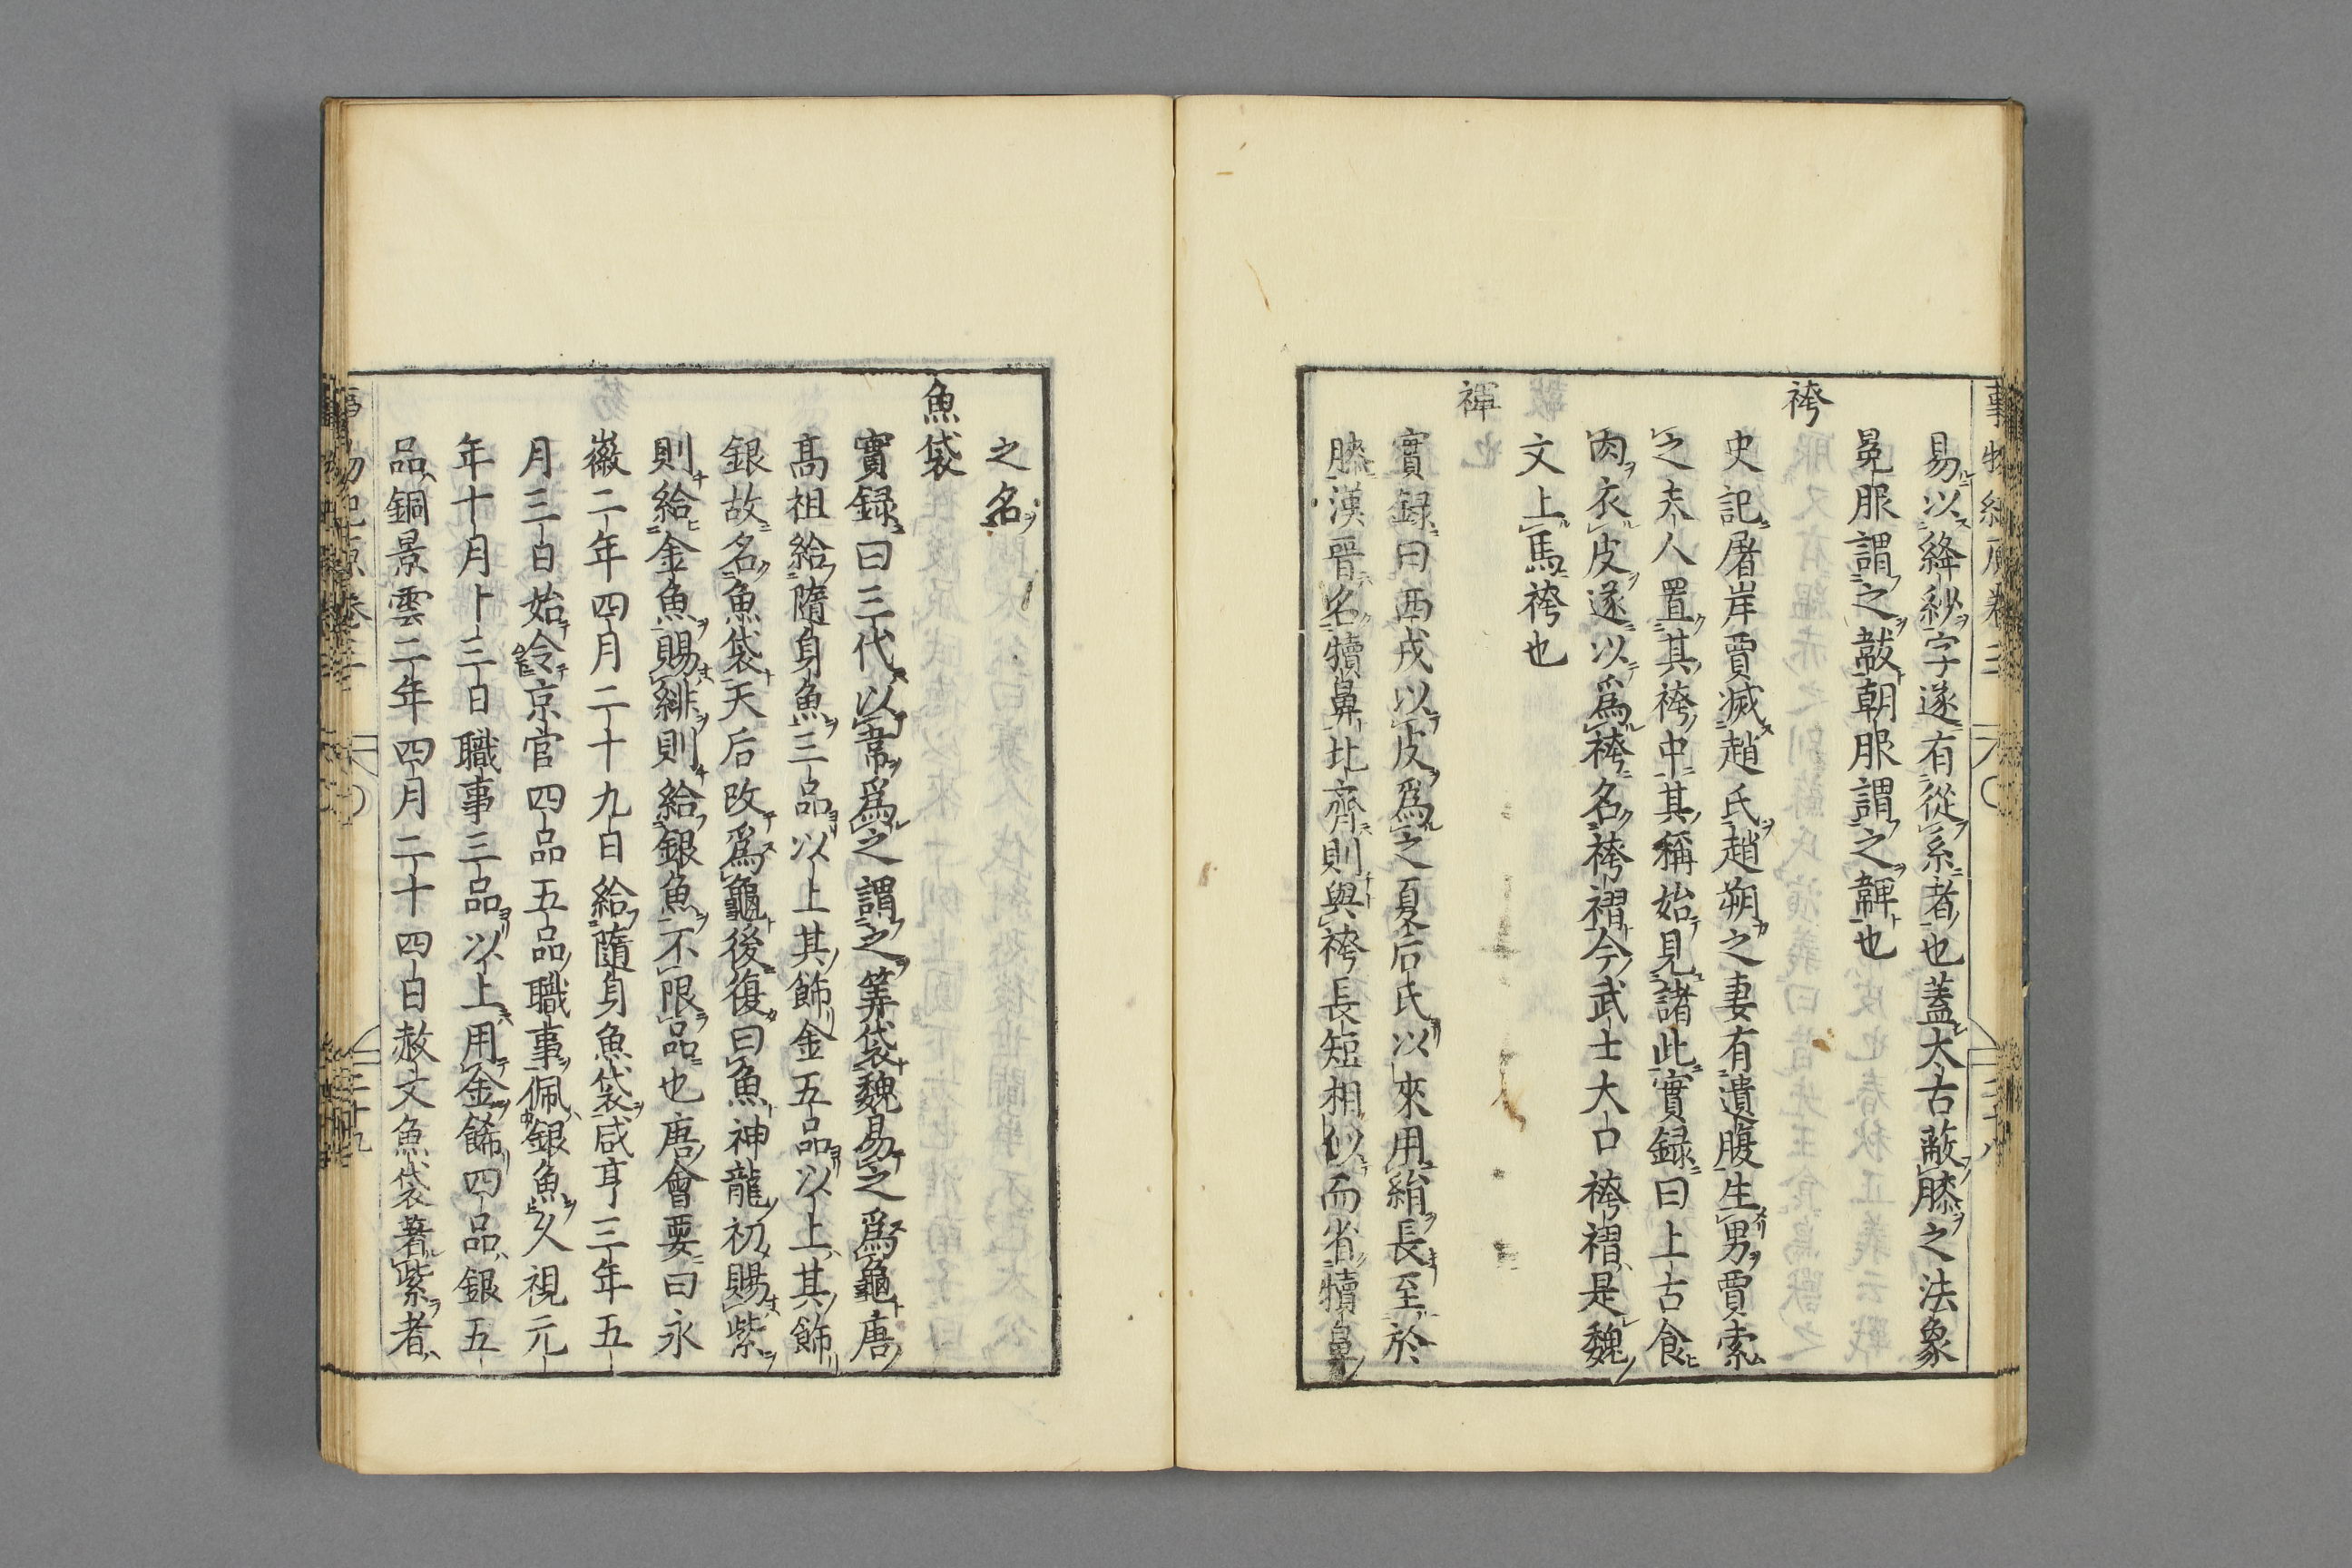 易以絳紗字遂有從系者也蓋太古蔽膝之法象
冕服謂之韍朝服謂之韠也
袴
史記屠岸賈滅趙氏趙朔之妻有遺腹生男賈索
之夫人置其袴中其稱始見諸此實録曰上古食
肉衣皮遂以爲袴名袴褶今武士大口袴褶是魏
文上馬袴也
褌
實録曰西戎以皮爲之夏后氏以來用絹長至於
膝漢晉名犢鼻北齊則與袴長短相似而省犢鼻
之名
魚袋
實録曰三代以韋爲之謂之筭袋魏易之爲龜唐
髙祖給隨身魚三品以上其飾金五品以上其飾
銀故名魚袋天后改爲龜後復曰魚神龍初賜紫
則給金魚賜緋則給銀魚不限品也唐會要曰永
徽二年四月二十九日給隨身魚袋咸亨三年五
月三日始令京官四品五品職事佩銀魚久視元
年十月十三日職事三品以上用金飾四品銀五
品銅景雲二年四月二十四日赦文魚袋著紫者
事物紀原卷三
二十九